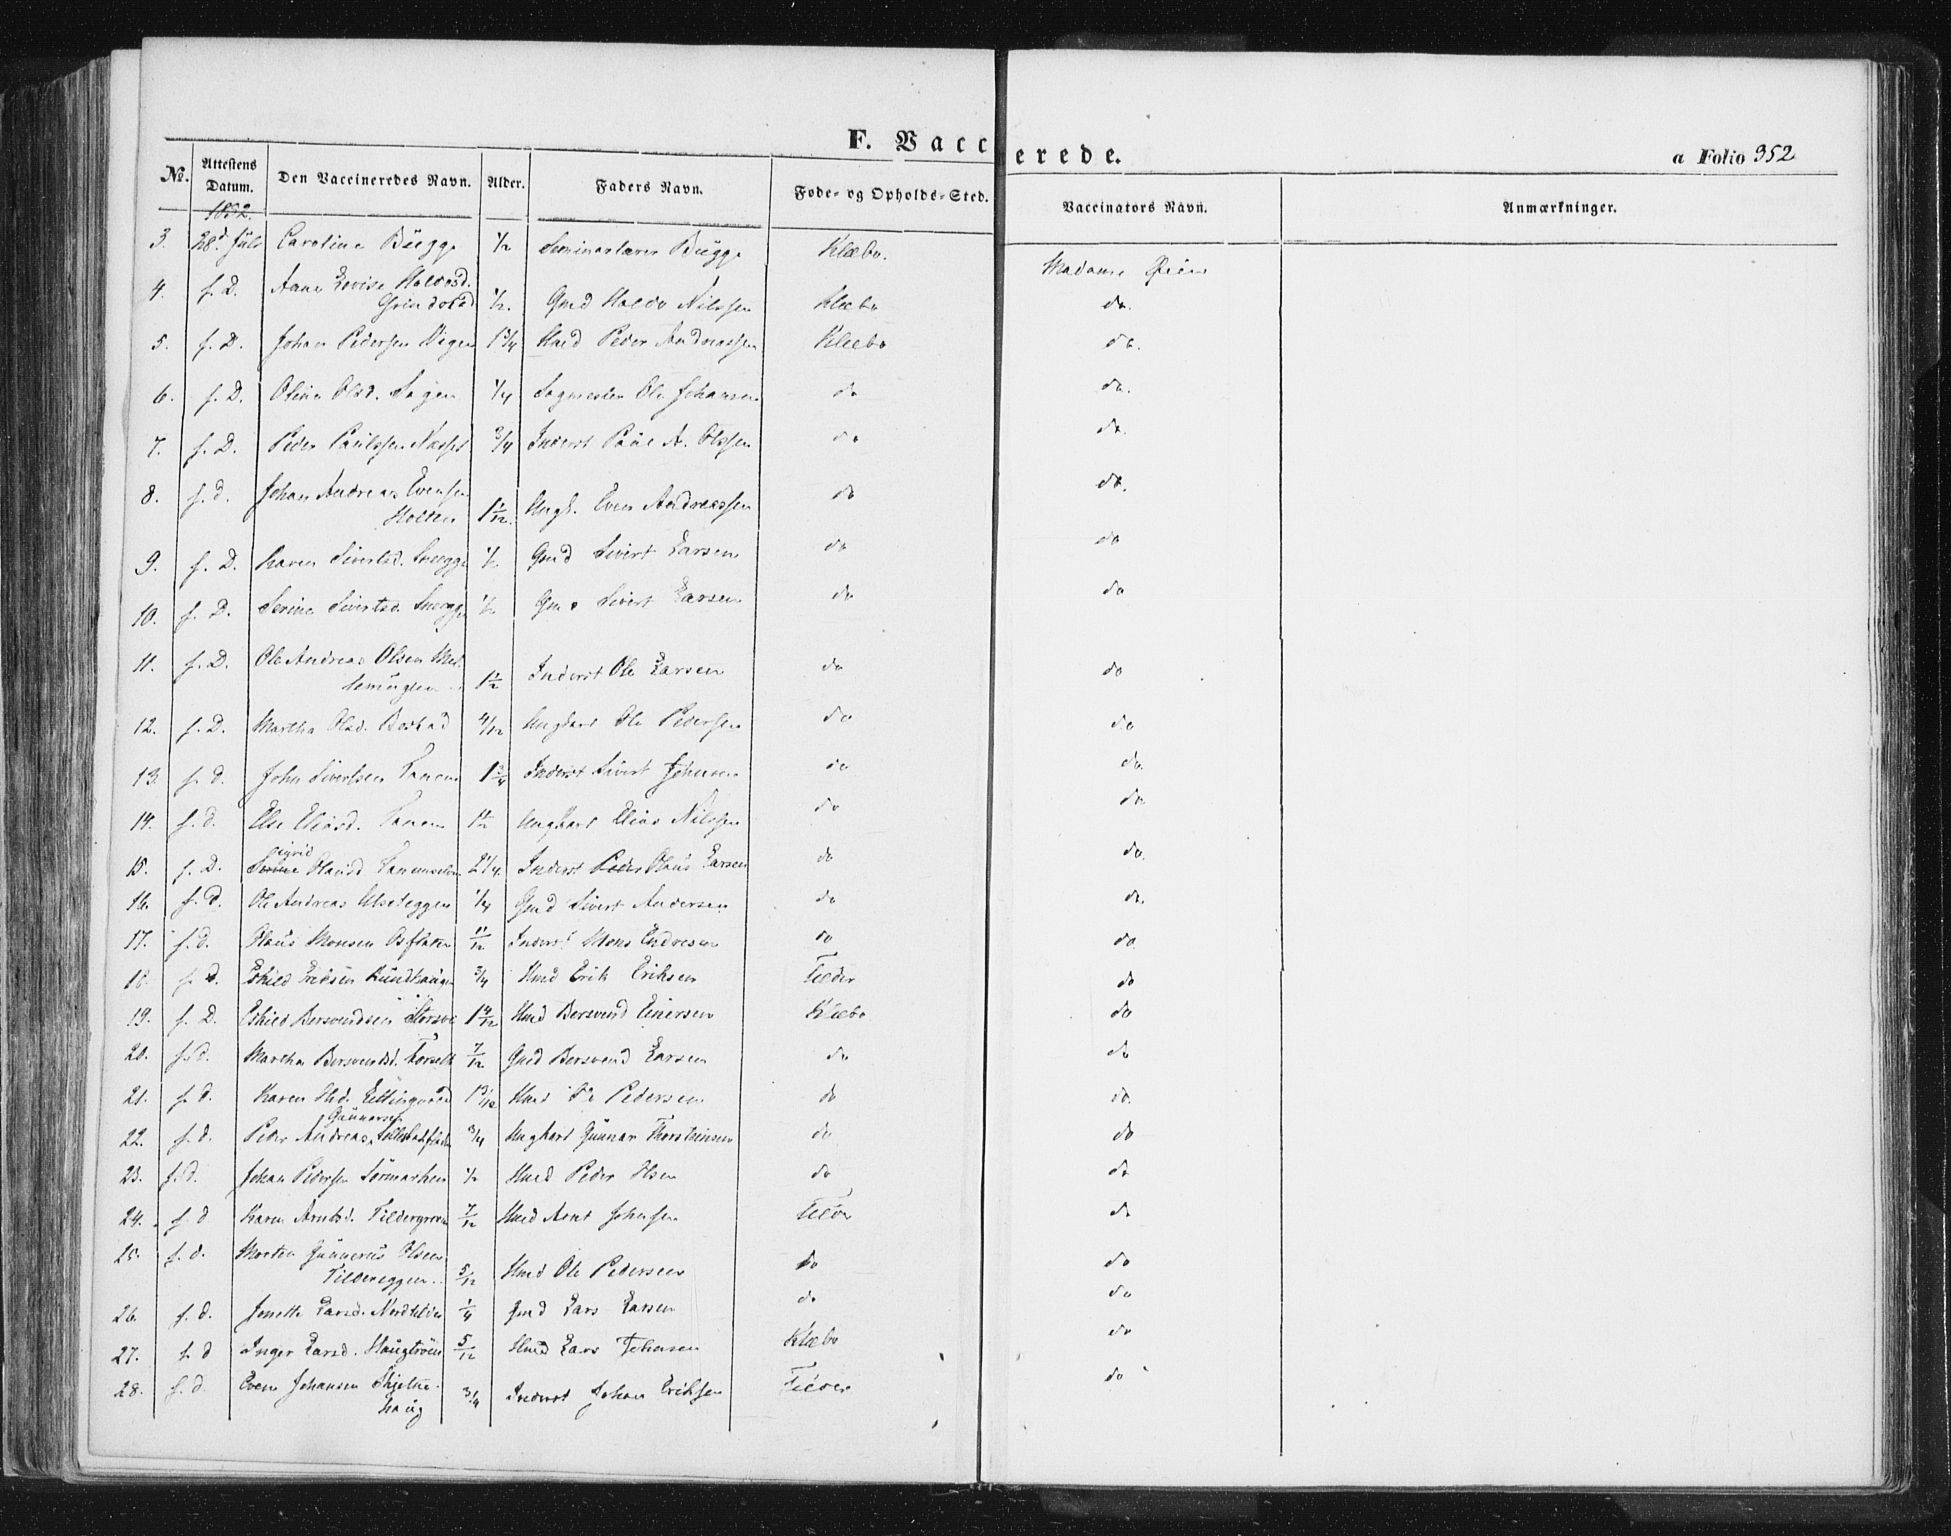 F. Vaccinerede.
a Folio 352
No. Attestens Datum. Den Vaccineredes Navn. Alder. Faders Navn. Føde- og Opholds-Sted. Vaccinators Navn. Anmærkninger.
1852.
3. 28d Juli Caroline Bügge 1/2 Seminarlærer Bügge Klæbo. Madame Øien
4. f. D. Anne Lovise Haldosd.
Grindstad 1/2. Gmd Haldo Nilssen Klæbo do.
5. f. D. Johan Pedersen Vigen 1 3/4 Hmd Peder Andreassen Klæbo do.
6. f. D. Oline Olsd. Sagen 1/4 Sagmester Ole Johansen do do.
7. f. D. Peder Paulssen Nesset 3/4 Inderst Paul A. Olssen do do.
8. f. d. Johan Andreas Evensen
Holten 1 1/12. Ungk. Even Andreassen do do.
9. f. D. Karen Sivertsd. 1/2 Gmd Sivert Larsen do do
10. f. D. Serine Sivertsd. 1/2 Gmd Sivert Larsen do do
11. f. D. Ole Andreas Olsen
1 1/2 Inderst Ole Larsen do do
12. f. D. Martha Olsd. Bostad 4/12 Ungkarl Ole Pedersen do do
13. f. d. John Sivertsen Tanem 1 3/4 Inderst Sivert Johnsen do do.
14. f. d. Else Eliasd. Tanem 1 1/2 Ungkarl Elias Nilssen do do.
15. f. D. Sigrid Olausd 2 1/4. Inderst Peder Olaus Larsen do do.
16. f. d. Ole Andreas Ulseteggen 1/4 Gmd Sivert Andersen do do.
17. f. d. Olaus Monsen 11/12 Inderst Mons Endresen do do
18. f. d. Eskild Eriksen Rundhaugen 3/4 Hmd Erik Eriksen Tilder do
19. f. D. Eskild Bersvendsen 1 4/12 Hmd Bersvend Einersen Klæbo do
20. f. d. Martha Bersvendsd. Forseth 7/12 Gmd Bersvend Larsen do do
21. f. d. Karen 1 3/12 Hmd Pedersen do do.
22. f. d. Peder Andreas Gunnarsen 3/4 Ungkarl Gunnar Thorsteinsen do do
23. f. d. Johan Pedersen Sørmarken 1/2 Hmd Peder Olsen do do
24. f. d Karen Arntsd. Tildergreen 7/12 Hmd Arnt Johnsen Tilder do
25. f. d. Morten Gunnerus Olsen
Tildereggen. 5/12 Hmd Ole Pedersen do do
26. f. d. Jonette Larsd. Nordtilder 1/4 Gmd Lars Larsen do do
27. f. d Inger Larsd. Haugtrøen 5/12 Hmd Lars Johnsen Klæbo do
28. f. d. Even Johansen Skjetne-
haug 3/4 Inderst Johan Eriksen Tilder do